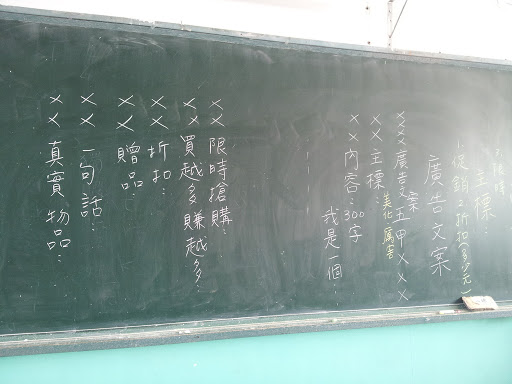 主標：
促銷：折扣(多少元)
廣告文案
×××廣告文案五甲×××
××主標：美化 厲害
××內容：300字
我是一個
××限時搶購：
××買越多賺越多：
××折扣：
××贈品：
××一句話：
××真實物品：